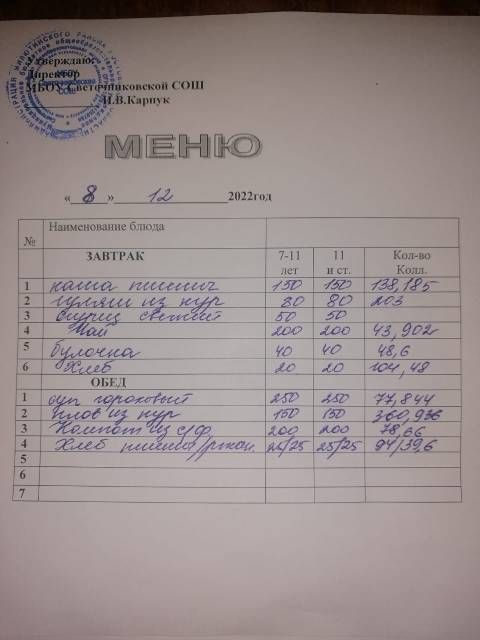 Утверждаю:
Директор
МБОУ Светочниковской СОШ
Н.В.Карпук
МЕНЮ
« 8 » 12 2022год
№ Наименование блюда
ЗАВТРАК 7-11 лет 11 и ст. Кол-во Колл.
1 каша пшенич 150 150 138,185
2 гуляш из кур 80 80 203
3 огурец свежий 50 50
4 Чай 200 200 43,902
5 булочка 40 40 48,6
6 Хлеб 20 20 104,48
ОБЕД
1 суп гороховый 250 250 77,844
2 плов из кур 150 150 360,936
3 Компот из с/ф 200 200 78,66
4 Хлеб пшенич/ржан. 25/25 25/25 94/39,6
5
6
7